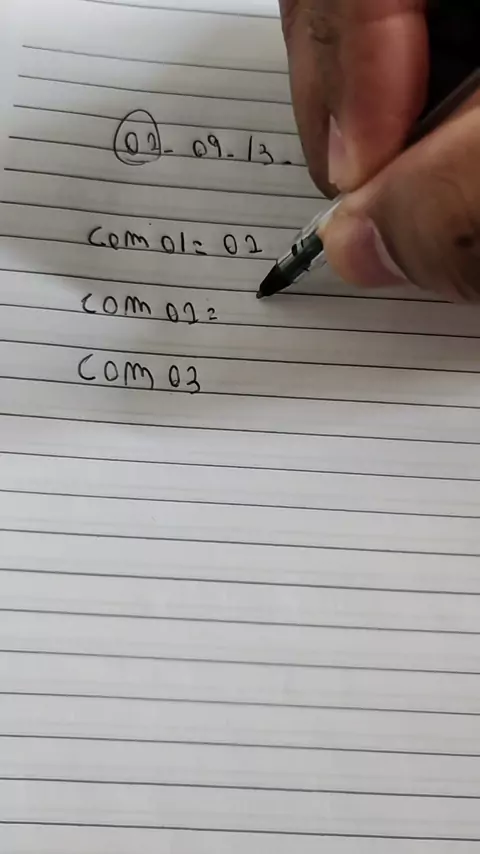 02- 09-13-
com 01= 02
com 02=
com 03